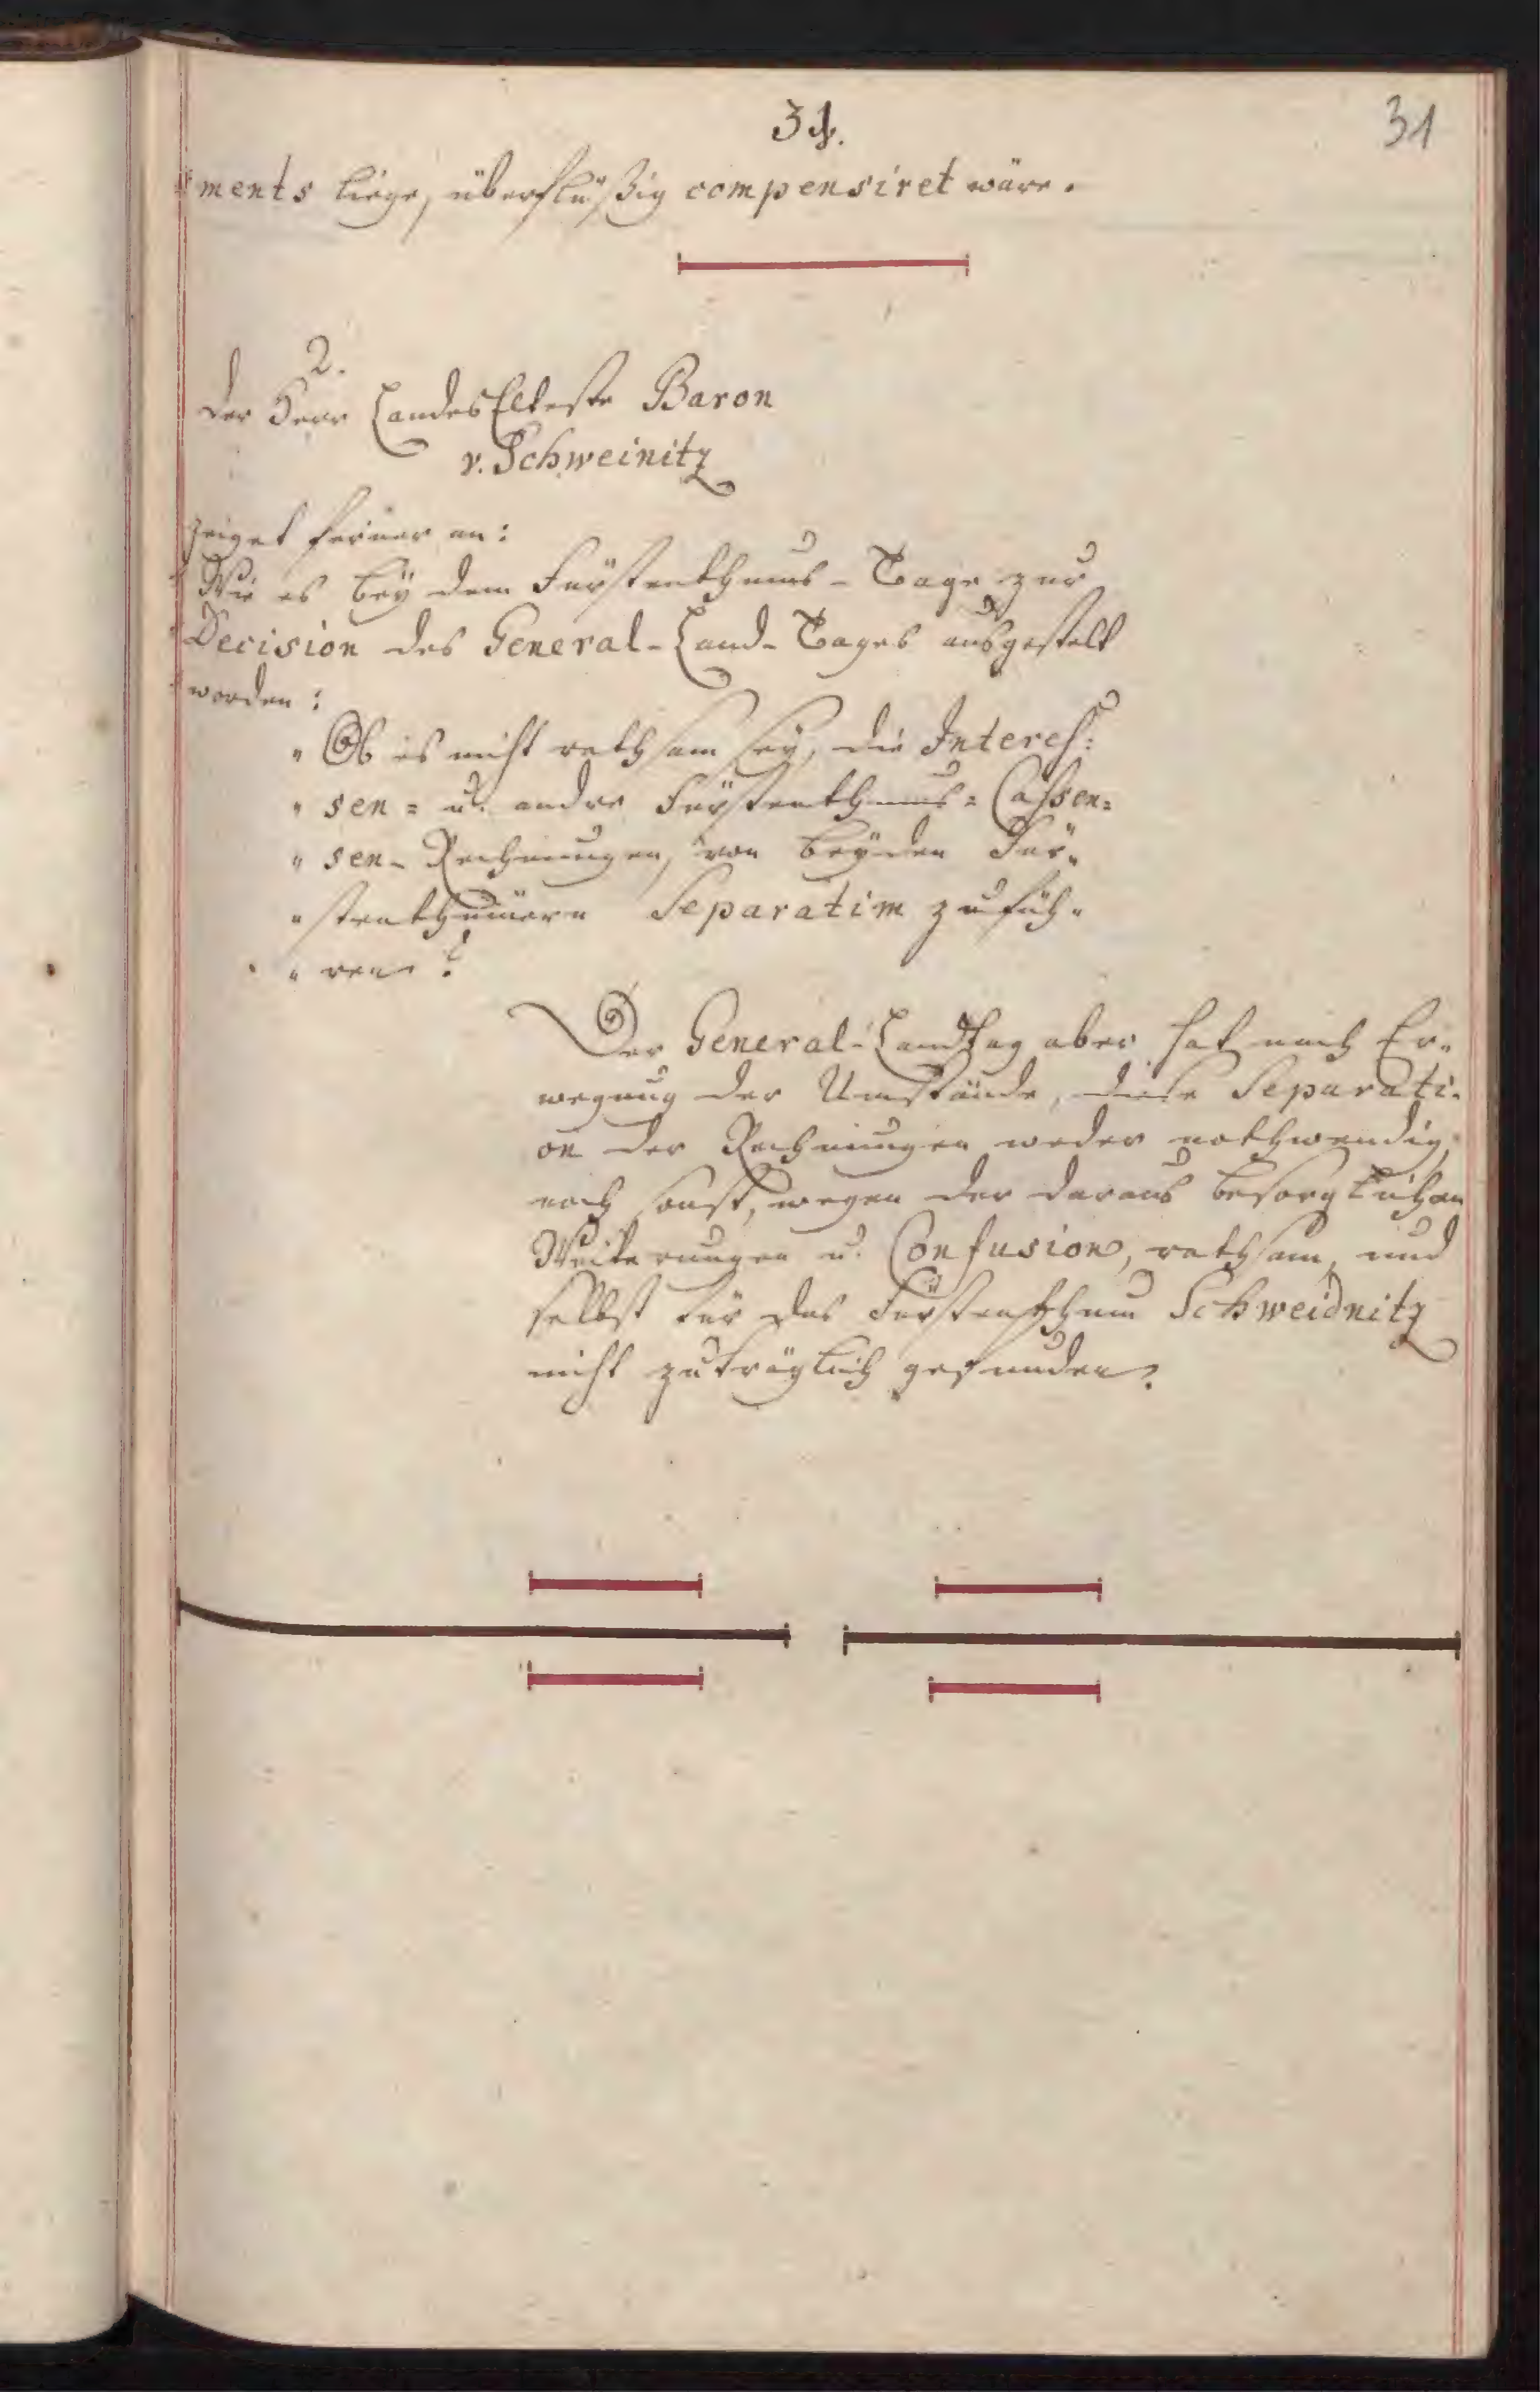 31.
31
ments liege, überflüßig compensiret wäre.
2.
der Herr LandesElteste Baron
v. Schweinitz
zeiget ferner an:
Wie es bey dem Fürstenthums-Tage zur
Decision des General-Land-Tages ausgestelt
worden:
" Ob es nicht rathsam sey, die Interes=
" sen= u. andre Fürstenthums=Cassen=
" sen-Rechnungen, von beyden Für"
" stenthümern Separatim zu füh"
" ren?
Der General-Landtag aber hat nach Er"
wegung der Umstände, diese Separati-
on der Rechnungen weder nothwendig,
noch sonst, wegen der daraus besorglichen
Weiterungen u. Confusion, rathsam, und
selbst für das Fürstenthum Schweidnitz
nicht zuträglich gefunden.